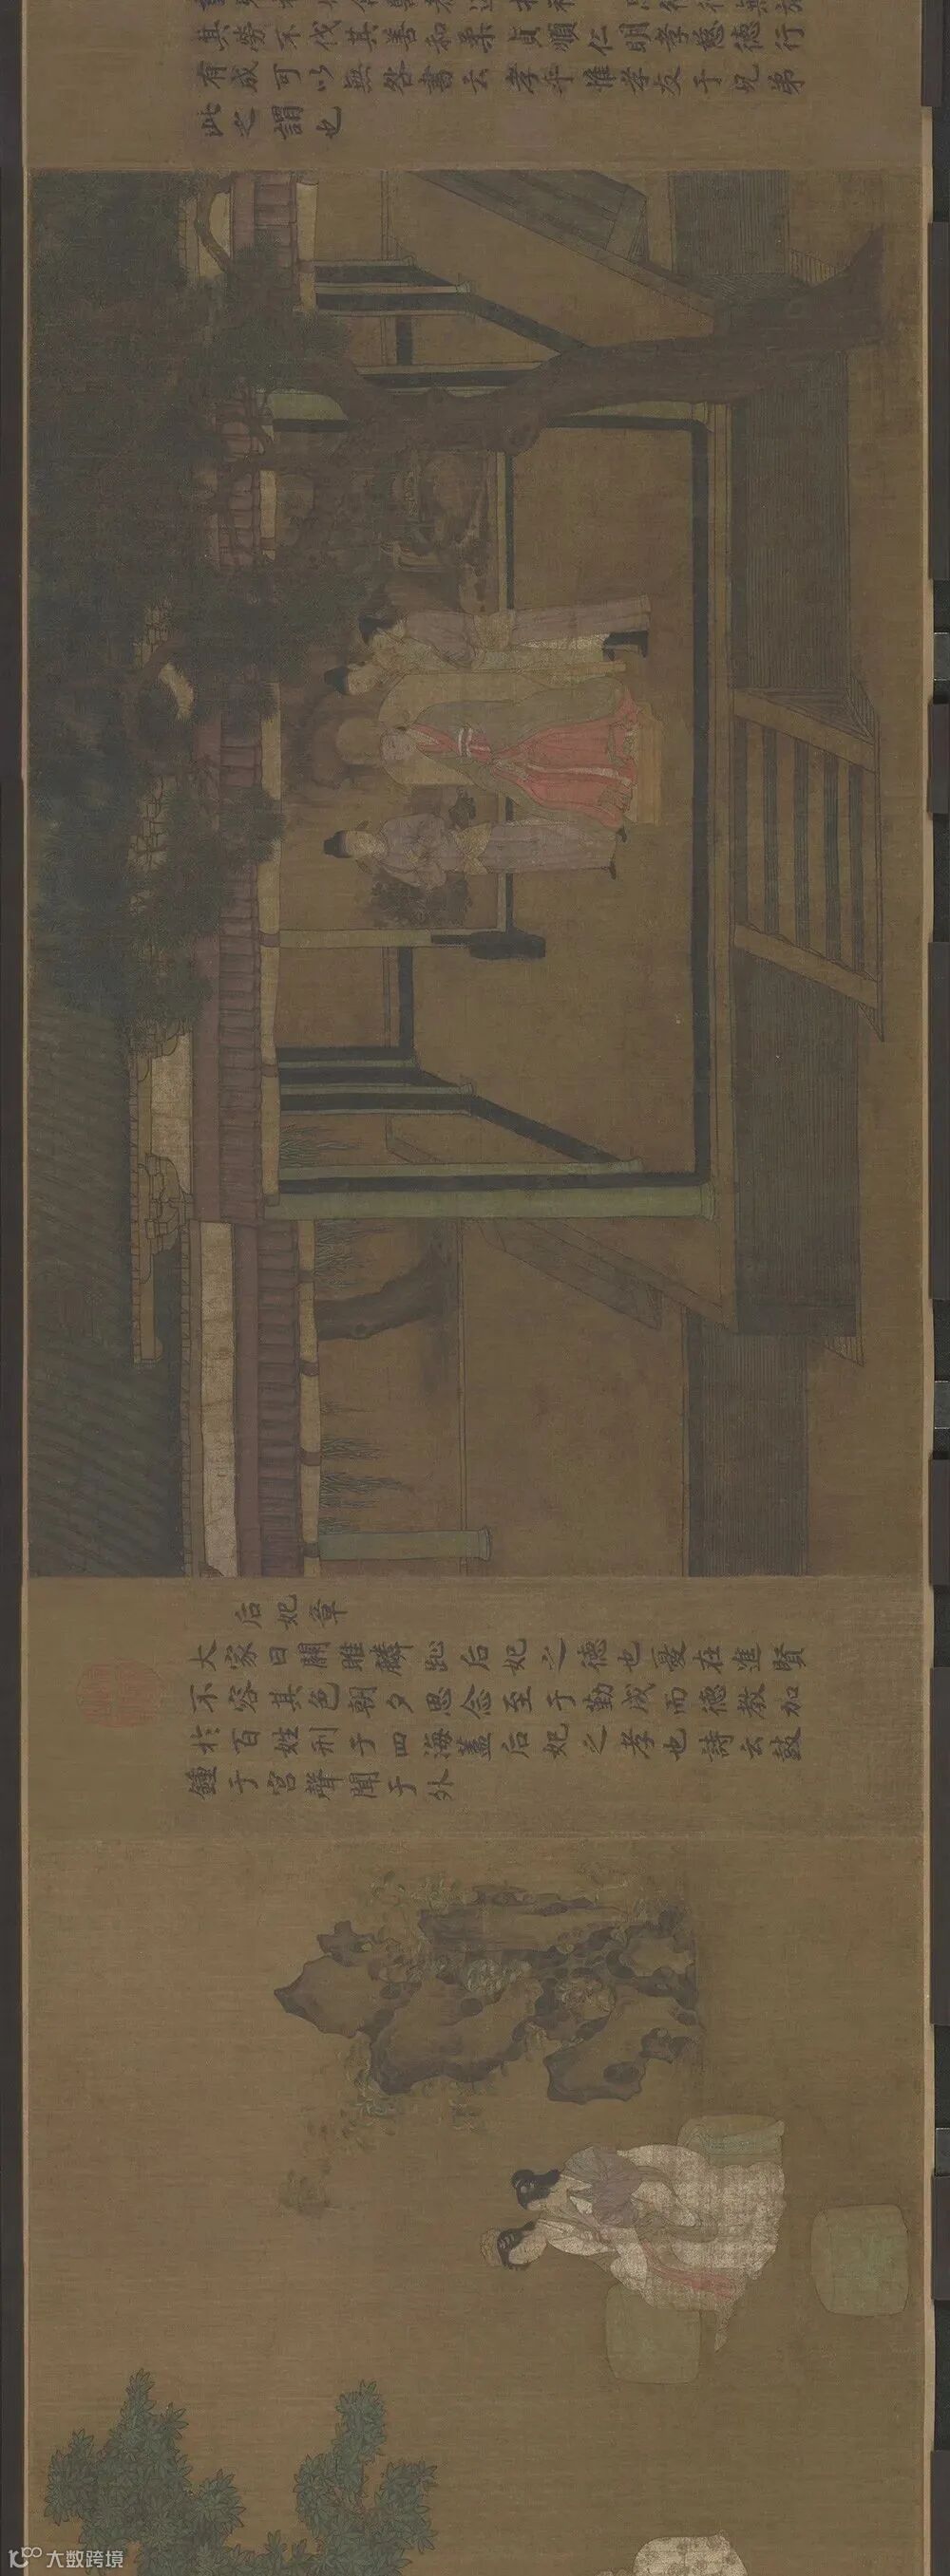 其勞不伐其善和柔貞順仁明孝慈德行
有成可以無咎書云孝乎惟孝友于兄弟
此之謂也
后妃章
大家曰關雎麟趾后妃之德也憂在進賢
不容其色朝夕思念至于勤而德教加
於百姓刑于四海蓋后妃之孝也詩云鼓
鍾于宮聲聞于外
大数跨境